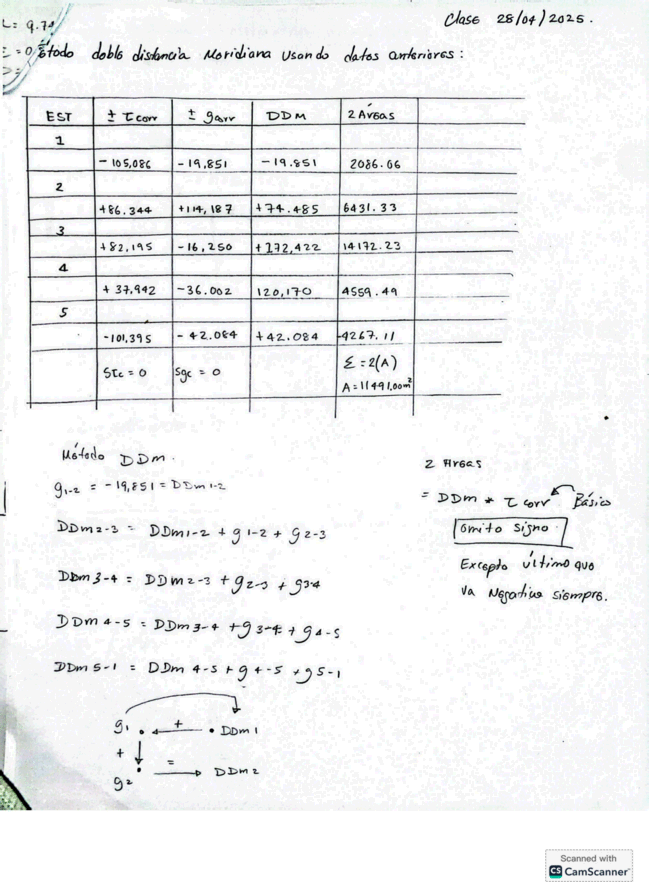 L= 9.74
Clase 28/04/2025.
Σ = 0
étodo doble distancia Moridiana usando datos anteriores:
EST ± τcorr ± gcorr DDM 2 Áreas
1
- 105,086 - 19,851 - 19.851 2086.06
2
+86.344 +114,187 +74.485 6431.33
3
+82,195 -16,250 +172,422 14172.23
4
+ 37,942 -36.002 120,170 4559.49
5
-101,395 - 42.084 +42.084 -4267.11
Sτc = 0 Sgc = 0 Σ = 2(A)
A = 11491,00m²
Método DDm.
g1-2 = -19,851 = DDm1-2
DDm2-3 = DDm1-2 + g1-2 + g2-3
DDm3-4 = DDm2-3 + g2-3 + g3-4
DDm4-5 = DDm3-4 + g3-4 + g4-5
DDm5-1 = DDm4-5 + g4-5 + g5-1
2 Areas
= DDm * τcorr Básico
omito signo.
Excepto último que
va Negativo siempre.
g1 + DDm1
+
g2 = DDm2
Scanned with
CS CamScanner